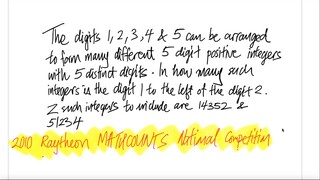 The digits 1, 2, 3, 4 & 5 can be arranged
to form many different 5 digit positive integers
with 5 distinct digits. In how many such
integers is the digit 1 to the left of the digit 2.
2 such integers to include are 14352 &
51234
2010 Raytheon MATHCOUNTS National Competition